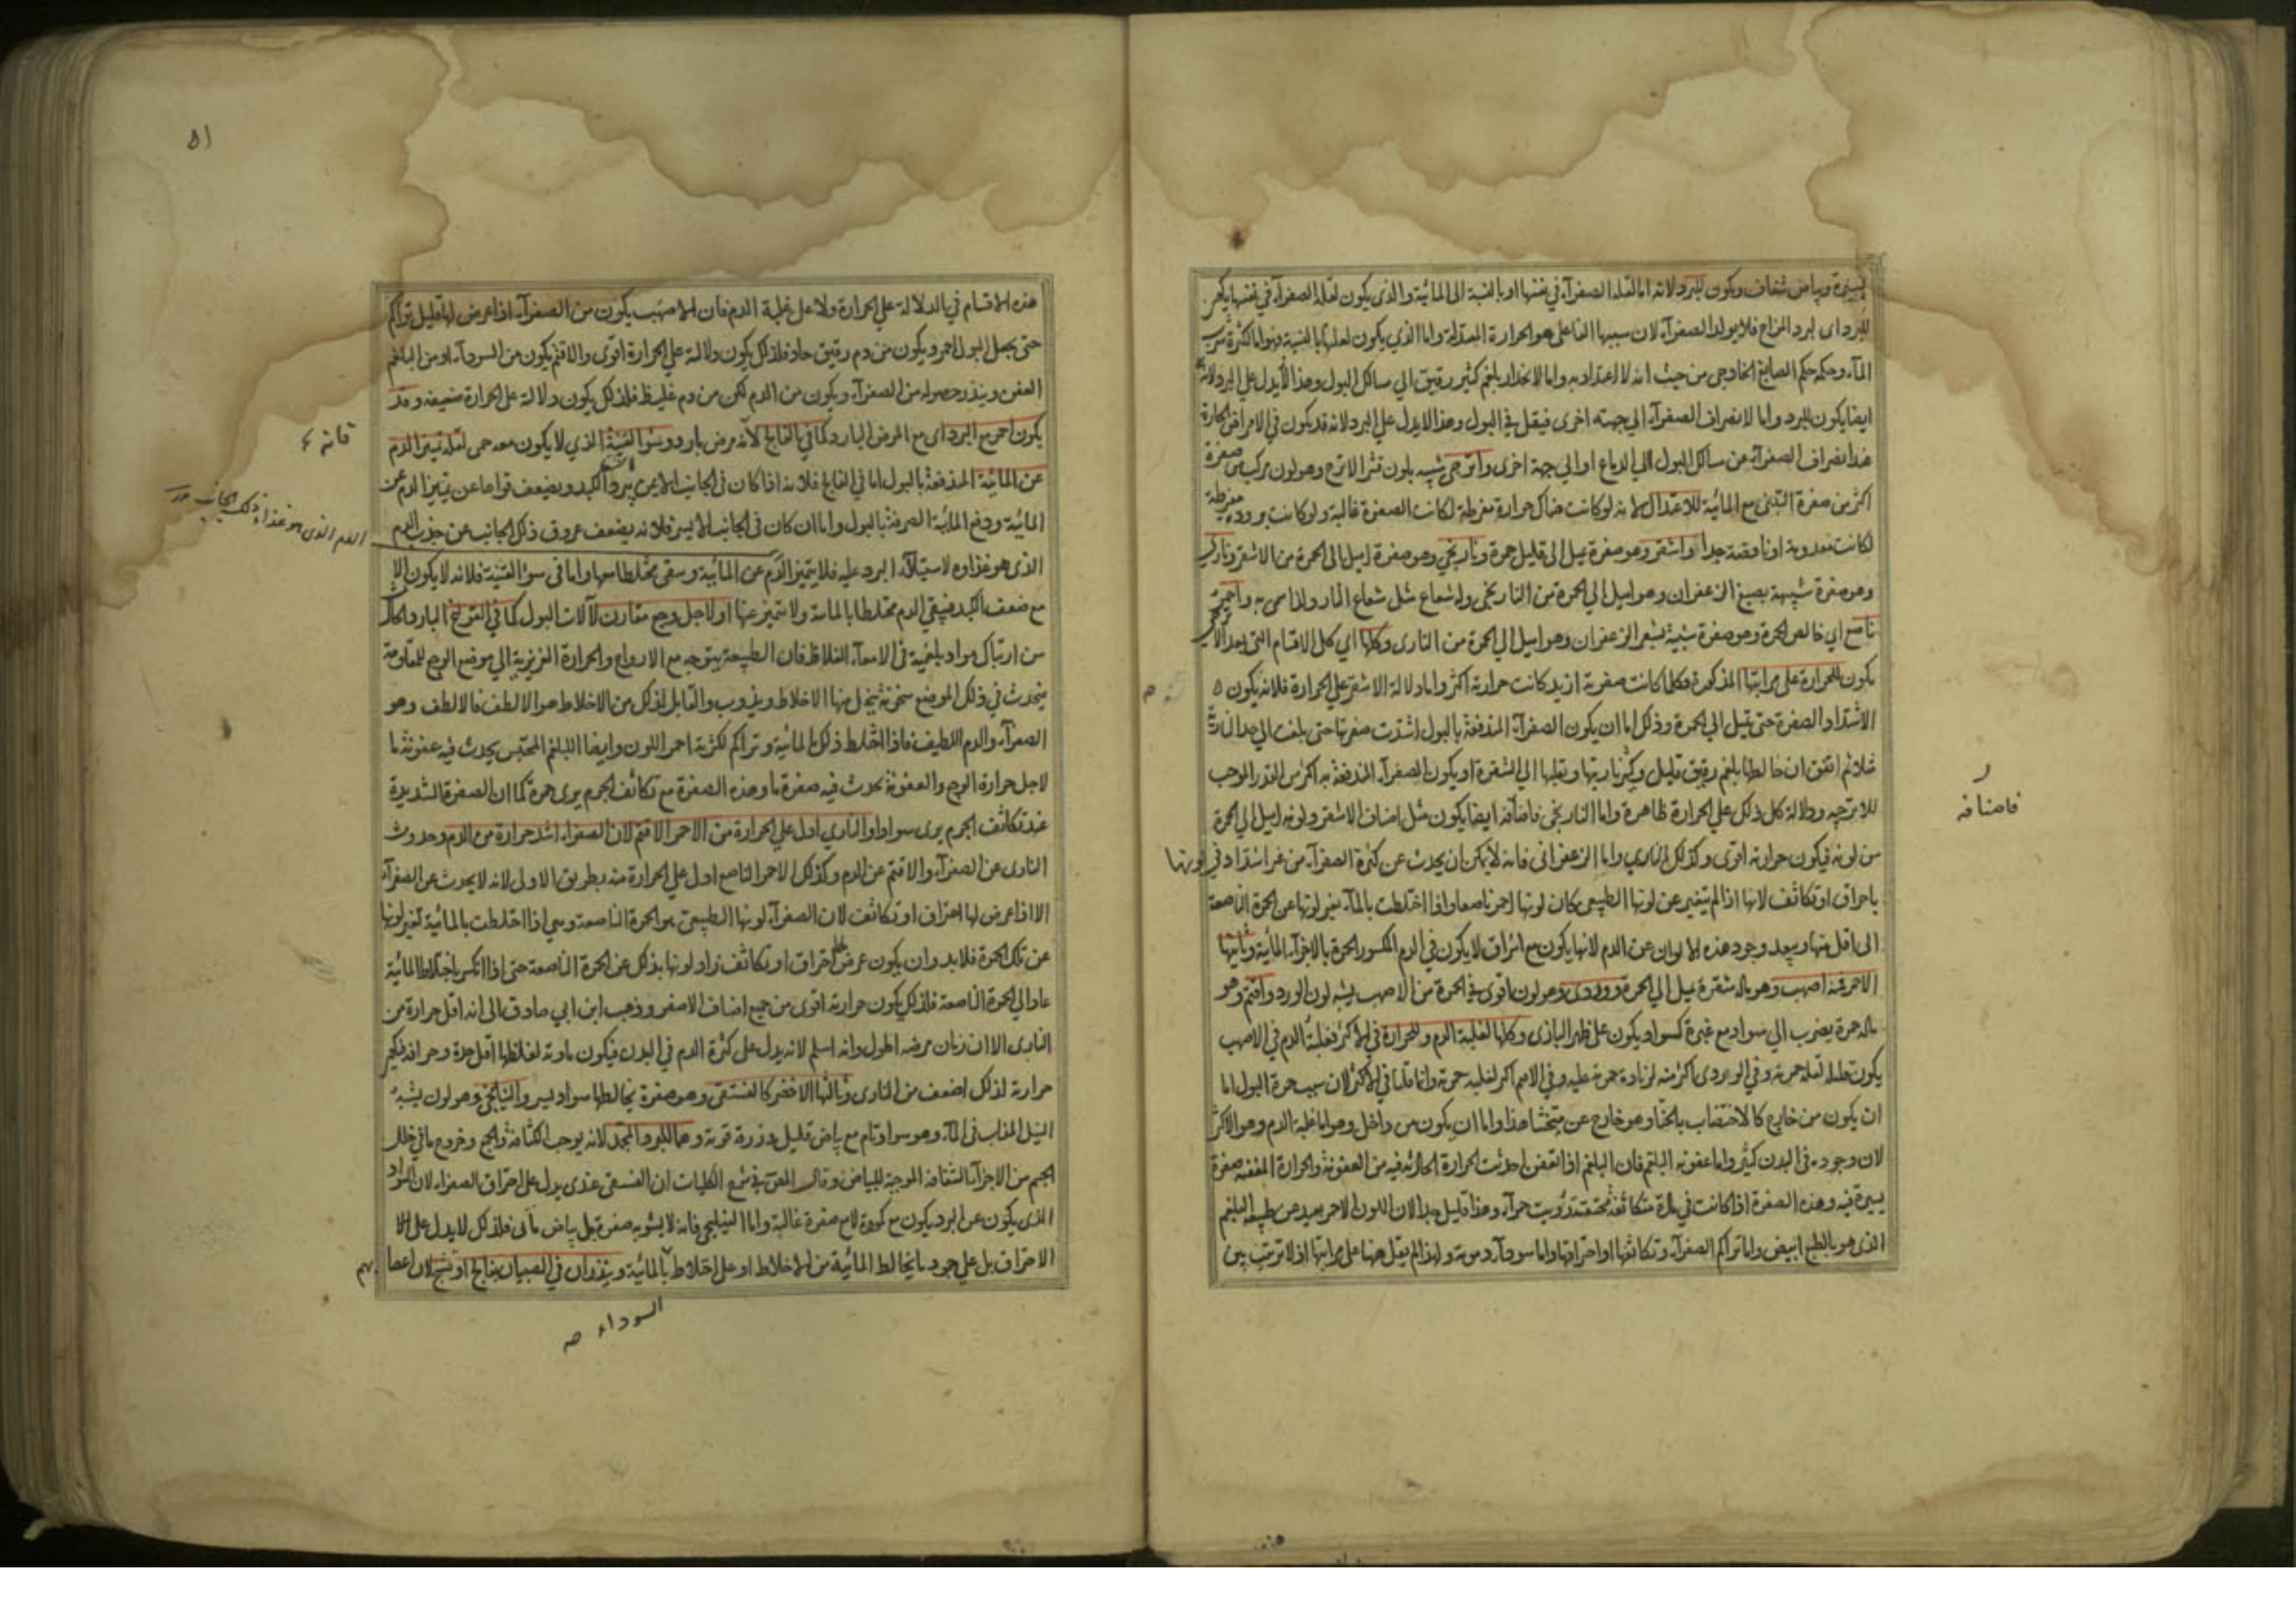 يسيرة وبياض شفاف ويكون للبرد لانه اما لقلة الصفرآء في نفسها او بالنسبة الى المائية والذى يكون لقلة الصفرآء في نفسها يكون
للبرد اى لبرد المزاج فلا يولد الصفرآء لان سببها الفاعلى هو الحرارة المعتدلة واما الذي يكون لقلتها بالنسبة فهو اما لكثرة شرب
المآء وحكمه حكم الصابغ الخارجى من حيث انه لا اعتداد به واما لانحدار بلغم كثير رقيق الى مسالك البول وهذا لا يدل على البرد لانه
ايضا يكون للبرد واما لانصراف الصفرآء الى جهة اخرى فيقل في البول وهذا لا يدل على البرد لانه قد يكون في الامراض الحارة
عند انصراف الصفرآء عن مسالك البول الى الدماغ او الى جهة اخرى واترجى شبيه بلون قشر الاترج وهو لون مركب من صفرة
اكثر من صفرة التبنى مع المائية للاعتدال لانه لو كانت هناك حرارة مفرطة لكانت الصفرة غالبة ولو كانت برودة مفرطة
لكانت معدومة او ناقصة جدا واشقر وهو صفرة يميل الى قليل حمرة ونارنجى وهو صفرة اميل الى الحمرة من الاشقر ونارى
وهو صفرة شبيهة بصبغ الزعفران وهو اميل الى الحمرة من النارنجى وله شعاع مثل شعاع النار ولذا سمى به واحمر
ناصع اي خالص الحمرة وهو صفرة شبيهة بشعر الزعفران وهو اميل الى الحمرة من النارى وكلها اي كل الاقسام التى بعد الاترجى
يكون للحرارة على مراتبها المذكورة فكلما كانت صفرته ازيد كانت حرارته اكثر واما دلالة الاشقر على الحرارة فلانه يكون
لاشتداد الصفرة حتى يميل الى الحمرة وذلك اما ان يكون الصفرآء المندفعة بالبول اشتدت صفرتها حتى بلغت الى حد النارية
مثلا ثم اتفق ان خالطها بلغم رقيق قليل وكسر ناريتها ونقلها الى الشقرة او يكون الصفرآء المندفعة به اكثر من القدر الموجب
للاترجيه ودلالة كل ذلك على الحرارة ظاهرة واما النارنجى فاضافه ايضا يكون مثل اضاف الاشقر ولونه اميل الى الحمرة
من لونه فيكون حرارته اقوى وكذلك النارى واما الزعفرانى فانه لا يمكن ان يحدث عن كثرة الصفرآء من غير اشتداد في لونها
باحراق او تكاثف لانها اذا لم يتغير عن لونها الطبيعى كان لونها احمر ناصعا واذا اختلطت بالمآء تغير لونها عن الحمرة الناصعة
الى اقل منها ويبعد وجود هذه الالوان عن الدم لانها يكون مع اشراق لا يكون في الدم المكسور الحمرة بالاجزآء المائية وثانيها
الاحمر فمنه اصهب وهو ماله شقرة يميل الى الحمرة ووردى وهو لون اقوى في الحمرة من الاصهب يشبه لون الورد واقتم وهو
ماله حمرة يضرب الى سواد مع غبرة كسواد يكون على ظهر البازى وكلها لغلبة الدم وللحرارة في الاكثر فغلبة الدم في الاصهب
يكون قليله لقلة حمرته وفي الوردى اكثر منه لزيادة حمرته عليه وفي الاقتم اكثر لغلبة حمرته وانما قلنا في الاكثر لان سبب حمرة البول اما
ان يكون من خارج كالاختضاب بالحنا وهو خارج عن مبحثنا هذا واما ان يكون من داخل وهو اما غلبة الدم وهو الاكثر
لان وجوده في البدن كثير واما عفونة البلغم فان البلغم اذا تعفن احدثت الحرارة الحادثة فيه من العفونة والحرارة المعفنة صفرة
يسيرة فيه وهذه الصفرة اذا كانت في مادة متكاثفة مجتمعة رؤيت حمرآء وهذا قليل جدا لان اللون الاحمر بعيد عن طبيعة البلغم
الذى هو بالطبع ابيض واما تراكم الصفرآء وتكاثفها او احتراقها واما سودآء دموية ولهذا لم يقل هنا على مراتبها اذ لا ترتب بين
فاصنافه
۵۱
هذه الاقسام في الدلالة على الحرارة ولا على غلبة الدم فان الاصهب يكون من الصفرآء اذا عرض لها قليل تراكم
حتى يجعل البول احمر ويكون من دم رقيق حاد فلذلك يكون دلالة على الحرارة اقوى والاقتم يكون من السودآء او من البلغم
العفن ويندر حصوله من الصفرآء ويكون من الدم لكن من دم غليظ فلذلك يكون دلالة على الحرارة ضعيفه وقد
يكون احمر مع البرد اى مع المرض البارد كما في الفالج لانه مرض بارد وسوء القنية الذي لا يكون معه حمى لقلة تميز الدم
عن المائية المندفعة بالبول اما في الفالج فلانه اذا كان في الجانب الايمن يبرد الكبد ويضعف قواها عن تميز الدم عن
المائية ودفع المائية الصرفة بالبول واما ان كان في الجانب الايسر فلانه يضعف عروق ذلك الجانب عن جذب الدم
الذى هو غذاوه لاستيلآء البرد عليه فلا يتميز الدم عن المائية وسقى مختلطا بها واما في سوء القنية فلانه لا يكون الا
مع ضعف الكبد فيبقى الدم مختلطا بالمائية ولا يتميز عنها اولاجل وجع مقارن لآلات البول كما في القولنج البارد الحادث
من ارتباك مواد بلغمية في الامعآء الغلاظ فان الطبيعة يتوجه مع الارواح والحرارة الغريزية الى موضع الوجع للمقاومة
فيحدث في ذلك الموضع سخونة يتحلل منها الاخلاط ويذوب والقابل لذلك من الاخلاط هو الالطف فالالطف وهو
الصفرآء والدم اللطيف فاذا اختلط ذلك بالمائية وتراكم لكثرته احمر اللون وايضا البلغم المحتبس يحدث فيه عفونة ما
لاجل حرارة الوجع والعفونة يحدث فيه صفرة ما وهذه الصفرة مع تكاثف الجرم يرى حمرة كما ان الصفرة الشديدة
عند تكاثف الجرم يرى سوادا والنارى ادل على الحرارة من الاحمر الاقتم لان الصفراء اشد حرارة من الدم وحدوث
النارى عن الصفرآء والاقتم عن الدم وكذلك الاحمر الناصع ادل على الحرارة منه بطريق الاولى لانه لا يحدث عن الصفرآء
الا اذا عرض لها احتراق او تكاثف لان الصفرآء لونها الطبيعى هو الحمرة الناصعة وهي اذا اختلطت بالمائية تغير لونها
عن تلك الحمرة فلابد وان يكون عرض لها احتراق او تكاثف زاد لونها بذلك عن الحمرة الناصعة حتى اذا انكسر باختلاط المائية
عاد الى الحمرة الناصعة فلذلك يكون حرارته اقوى من جميع اصناف الاصفر وذهب ابن ابي صادق الى انه اقل حرارة من
النارى الا ان زمان مرضه اطول وانه اسلم لانه يدل على كثرة الدم في البدن فيكون مادته لغلظها اقل حدة وحرافة فيكون
حرارته لذلك اضعف من النارى وثالثها الاخضر كالفستقى وهو صفرة يخالطها سواد يسير والنيلنجى وهو لون يشبه
النيل المذاب في المآء وهو سواد تام مع بياض قليل وزرقة قوية وهما للبرد المجمد لانه يوجب الكثافة والجمع وخروج ما في خلل
الجسم من الاجزآء الشفافة الموجبة للبياض وقال المص في شرح الكليات ان الفستقى عندى يدل على احتراق الصفراء لان السواد
الذى يكون عن البرد يكون مع كمودة لا مع صفرة غالبة واما النيلنجى فانه لا يشوبه صفرة بل بياض ما فلذلك لا يدل على
الاحتراق بل على جود ما يخالط المائية من الاخلاط او على اختلاط بالمائية وينذران في الصبيان بفالج او تشنج لان اعصا
فانه
الدم الذى هو غذاء ذلك الجانب
السوداء صه